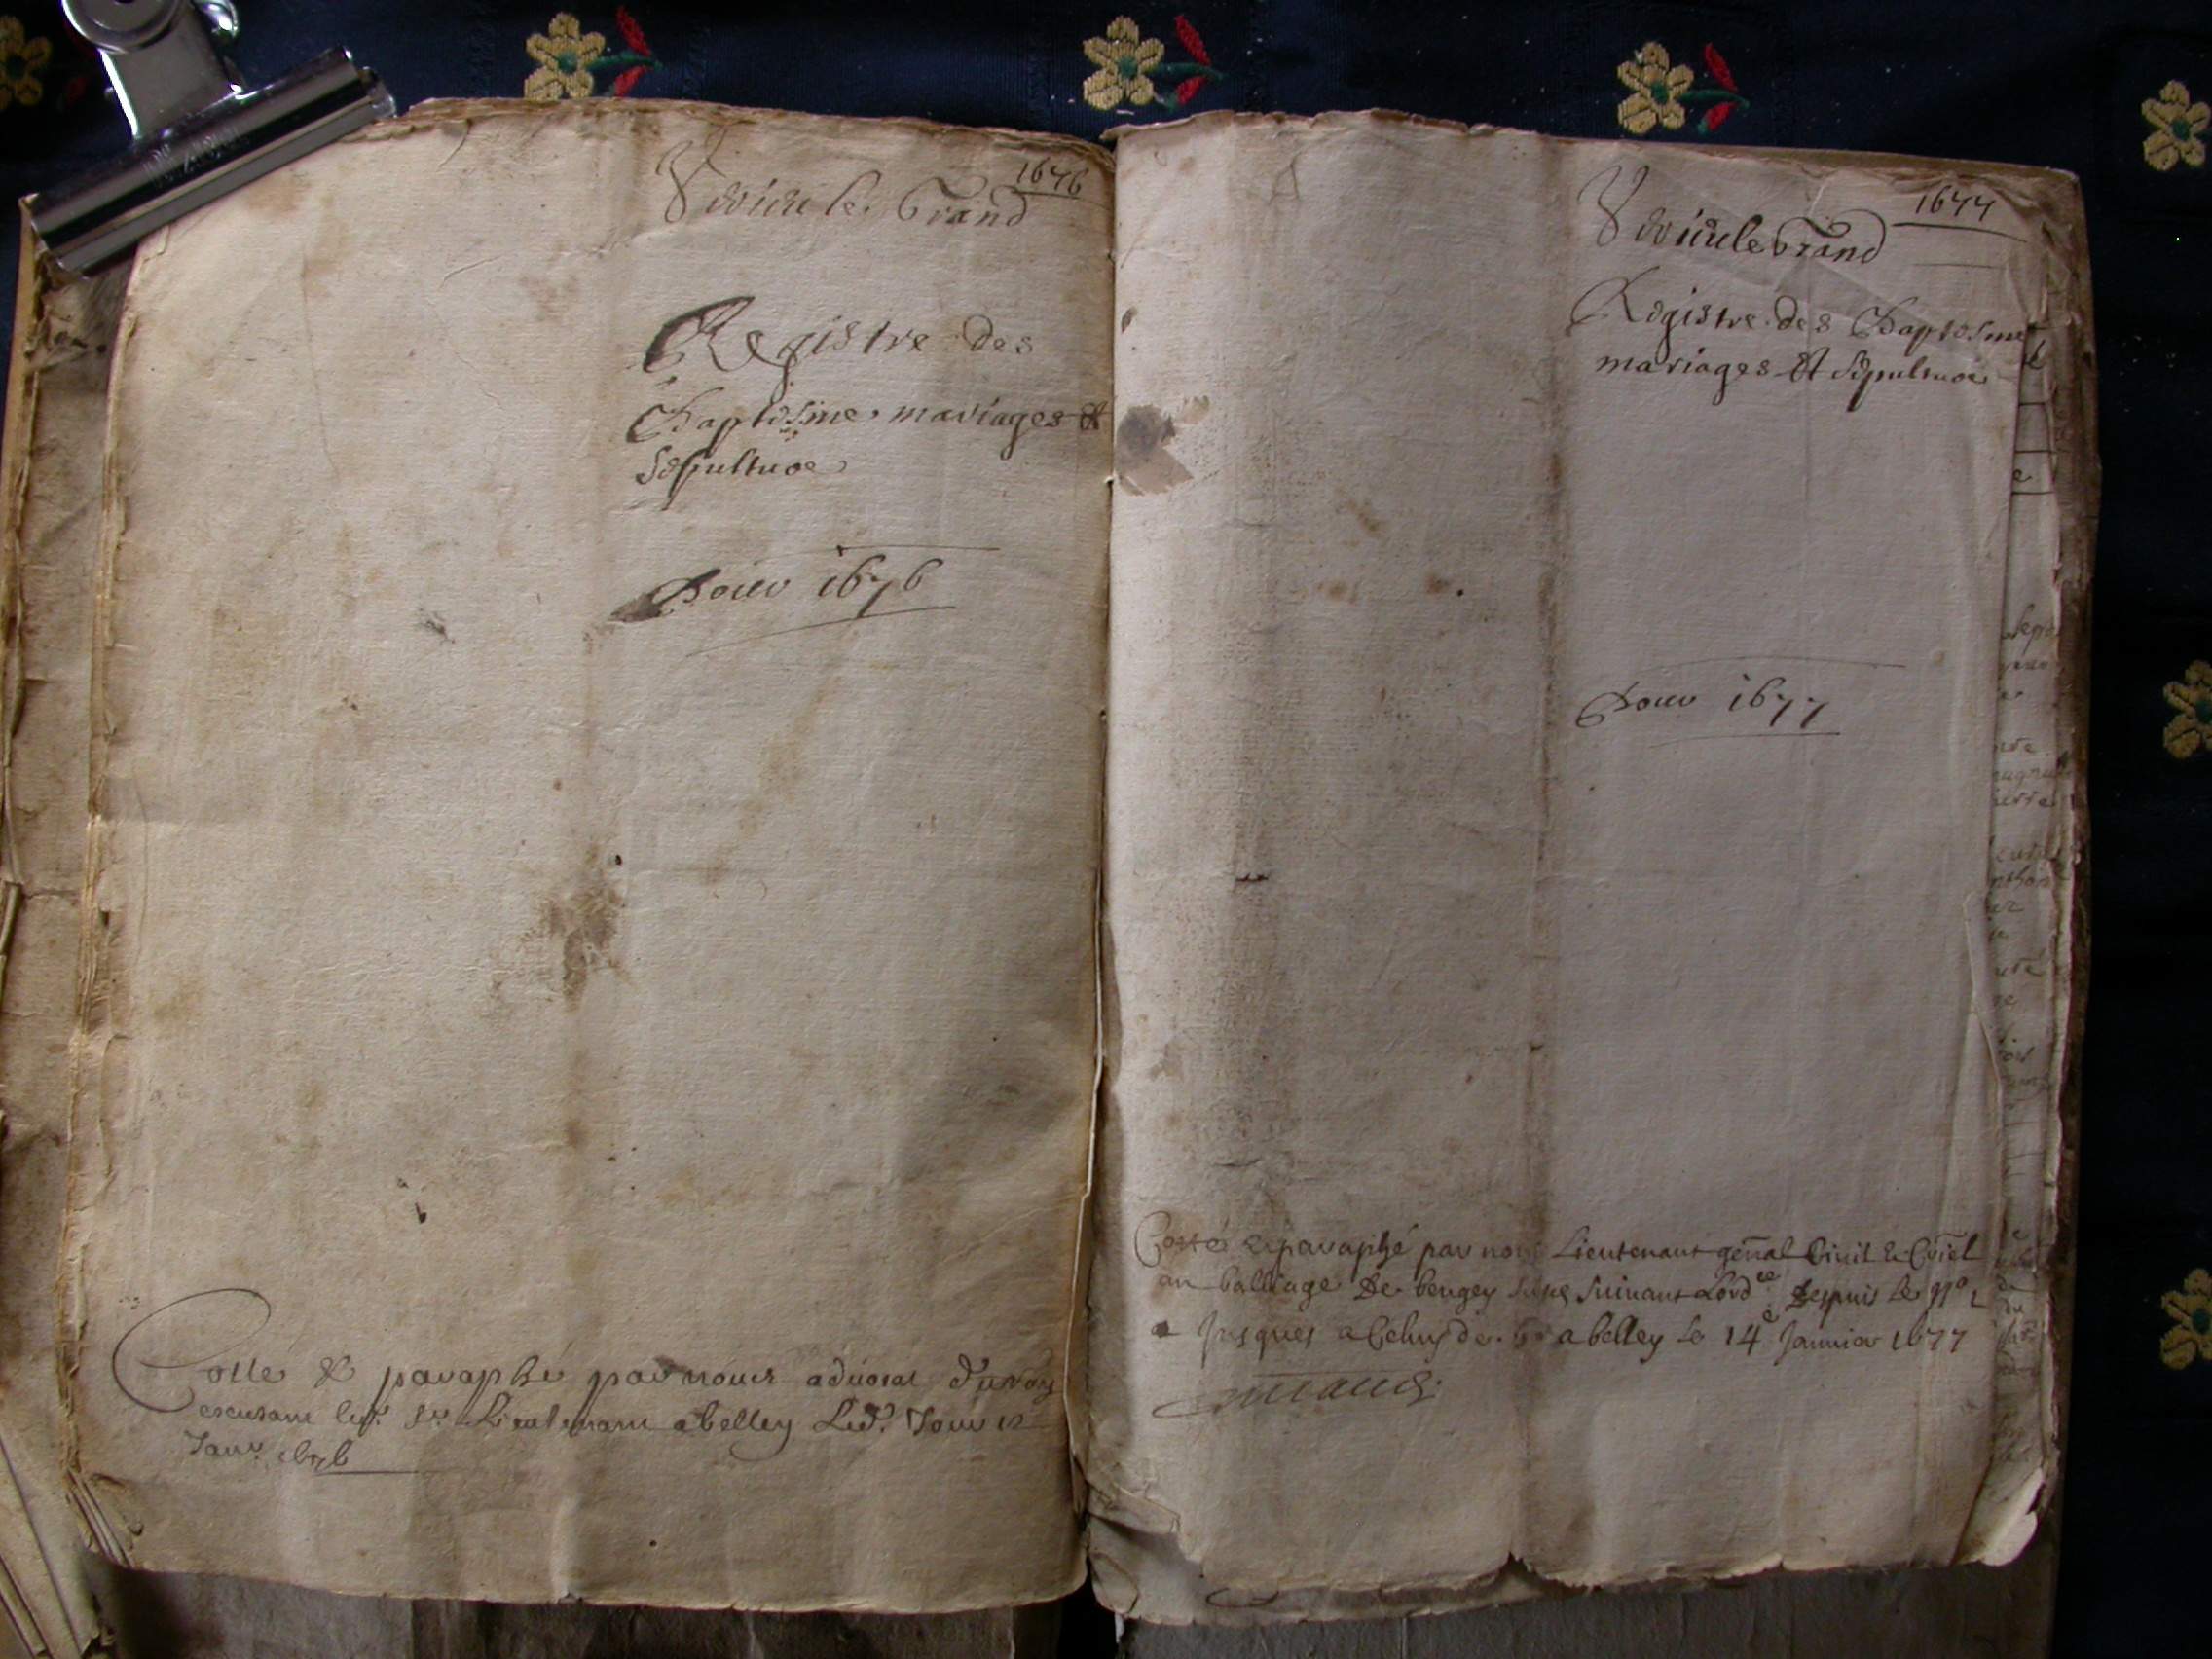 1676
Virieu le Grand
Registre des
Baptesme, mariages &
Sepulture
Pour 1676
Cotté & paraphé par nous advocat
Lieutenant a belley Led. Jour 12
Janv. 1676
1677
Virieu le Grand
Registre des Baptesme
mariages & Sepulture
Pour 1677
Cotté et paraphé par nous Lieutenant genal Civil & Criel
au balliage De beugey Suivant Lordce Depuis le
Jusques a Celuy de a belley le 14e Janvier 1677